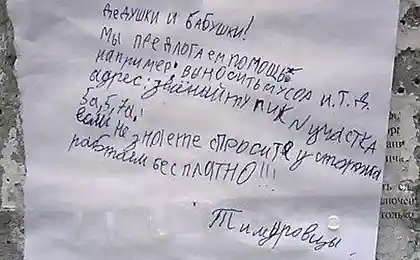 Дедушки и бабушки!
Мы предлогаем помощь
например: выносить мусор и.т.д.
адрес: звоните тупик N участка
5а, 5, 7а,:
если не знаете спросите у сторожа
работаем бесплатно!!!
Тимуровцы.